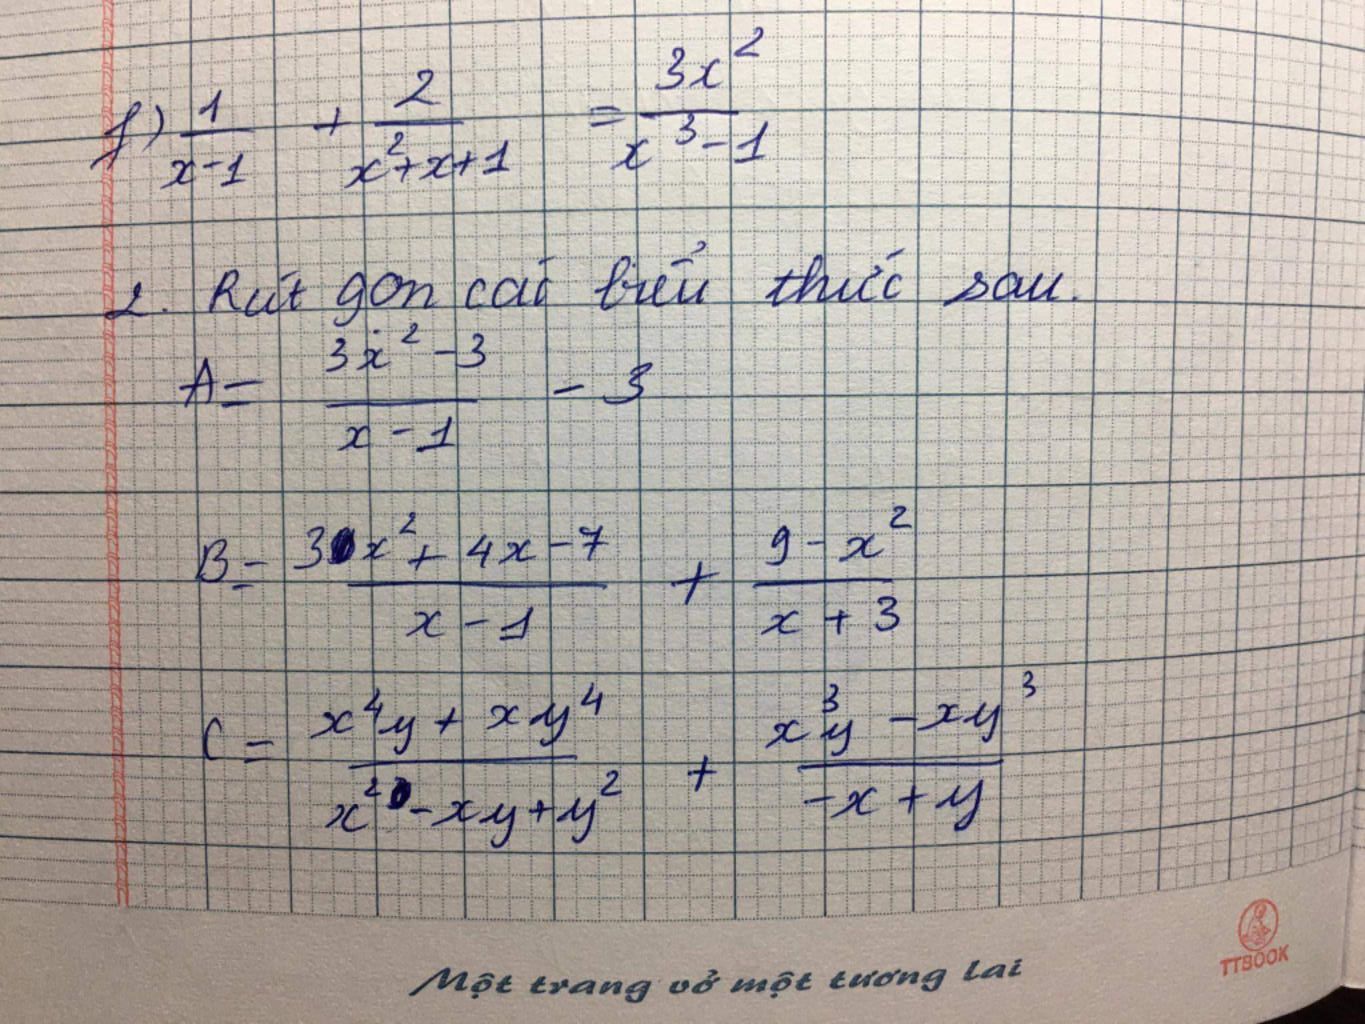 f) 1/(x-1) + 2/(x²+x+1) = 3x²/(x³-1)
2. Rút gọn các biểu thức sau.
A = (3x²-3)/(x-1) - 3
B = (3x²+4x-7)/(x-1) + (9-x²)/(x+3)
C = (x⁴y+xy⁴)/(x²-xy+y²) + (x³y-xy³)/(-x+y)
Một trang vở một tương lai
TTBOOK